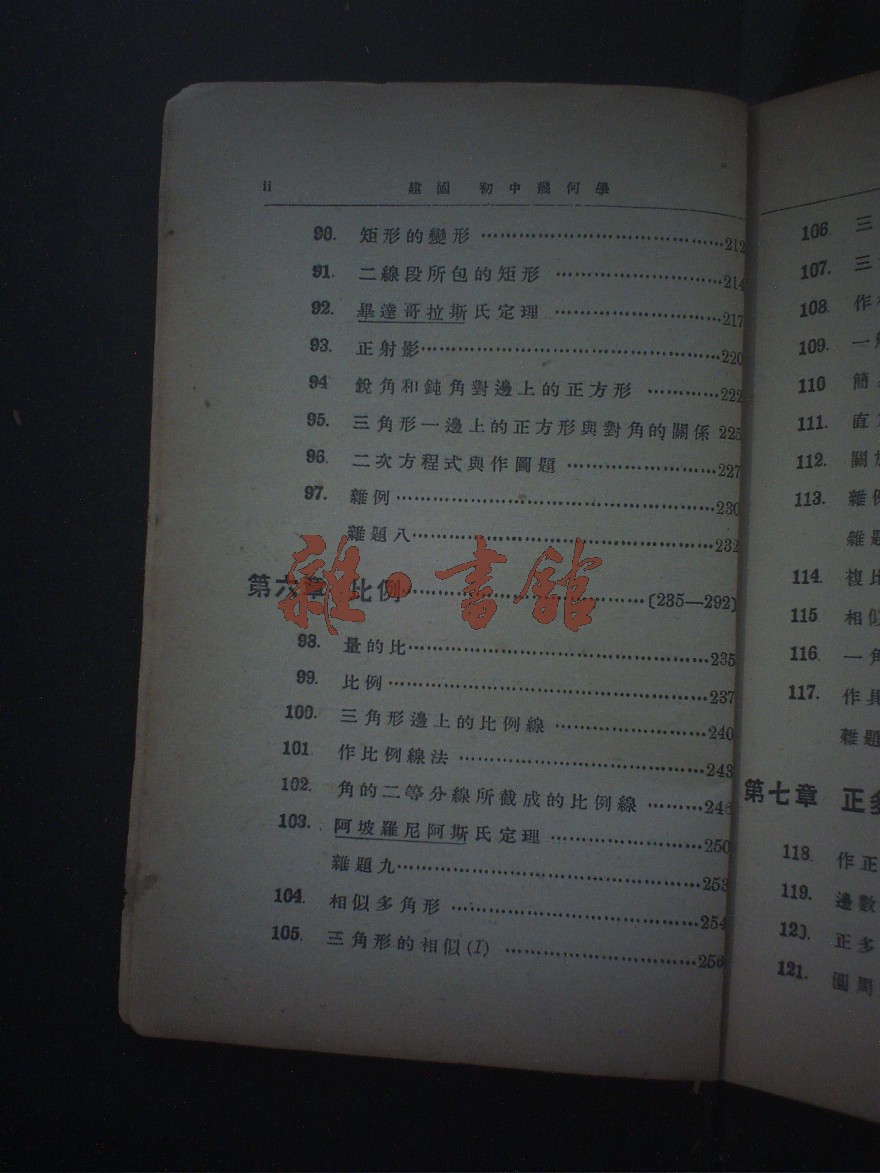 ii 建國 初中幾何學
90. 矩形的變形 ……212
91. 二線段所包的矩形 ……214
92. 畢達哥拉斯氏定理 ……217
93. 正射影……220
94 銳角和鈍角對邊上的正方形 ……222
95. 三角形一邊上的正方形與對角的關係 225
96. 二次方程式與作圖題 ……227
97. 雜例……230
雜題八……232
第六章 比例……〔235—292〕
98. 量的比……235
99. 比例……237
100. 三角形邊上的比例線 ……240
101 作比例線法 ……243
102. 角的二等分線所截成的比例線 ……246
103. 阿坡羅尼阿斯氏定理 ……250
雜題九……253
104. 相似多角形 ……254
105. 三角形的相似(I) ……256
雜·書館
106 三
107. 三
108 作
109. 一
110 簡
111. 直
112. 關於
113. 雜例
雜題
114. 複比
115 相似
116. 一角
117. 作具
雜題
第七章 正多
118. 作正
119. 邊數
120. 正多
121. 圓周